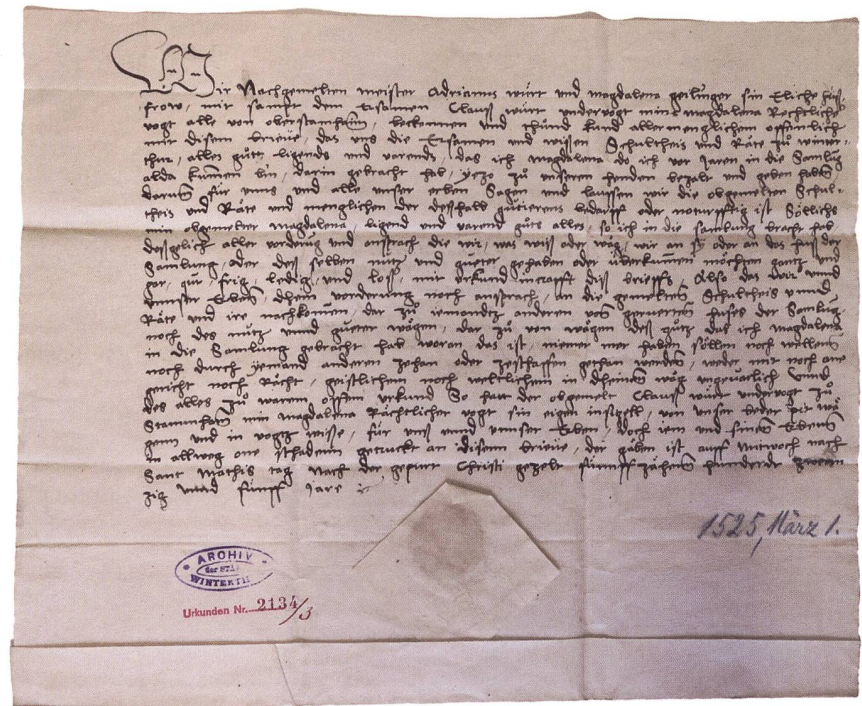 Wir Nachgemelten meister Adrianus würt und magdalena geilinger sin Eliche huß
frow, mit sampt dem Ersamen Clauß würt undervogt min magdalena Rechtlicher
vogt alle von oberstamhaim, bekennen und thund kund allermenglichem offennlich
mit disem brieve, das uns die Ersamen und wissen Schultheis und Räte zů winter-
thur, alles gůtz ligends und varends, das ich magdalena do ich vor Jaren in die Samlung
alda kummen bin, darin gebracht hab, yezo zů unseren henden bezalt und geben habend
darum für unns und alle unser erben Sagen und laussen wir die obgemelten Schul-
theis und Räte und menglichen der deßhalb quitierens bedarff oder notturfftig ist Sölichs
min obgemelter magdalena, ligend und varend gůtz alles, so ich in die samlung bracht hab
desglich aller vorderung und ansprach die wir, was wiss oder wäg, wir an sy oder an das huß der
Samlung, oder deß selben nutz und gueter gehaben oder überkummen möchten gantz und
gar, quit, frig, ledig, und loss, mit urkund incrafft diß brieffs Also das wir unnd
unnser Erben dhein vorderung noch ansprach, an die gemelten Schultheis unnd
Räte und ire nachkomen, dar zů iemandtz anderen von gemeltes huses der Samlung
noch des nutz unnd gueter wägen, dar zů von wägen deß gůtz das ich magdalena
in die Samlung gebracht hab woran das ist, niemer mer haben söllen noch wellen
noch durch yemand anderen zethun oder zeschaffen gethan werden, weder mit noch one
gericht noch Rächt, geistlichem noch weltlichem in dheinen wäg ungevarlich Unnd
des alles zů warem offem urkund So hatt der obgemelt Clauss würt undervogt zů
Stammhaim min magdalena Rächtlicher vogt sin eigen insigell, von unser beder pit wä
genn und in vogtz wisse, für uns unnd unnser Erben, doch iem und sinen Erben
in allweg one schaden getruckt an disenn brieve, der gäben ist auff mitwoch nach
Sant Mathis tag Nach der gepurt Christi gezelt fünnffzähen hunderdt zwen
zig unnd fünff Jare
1525, März 1.
ARCHIV
der STADT
WINTERTHUR
Urkunden Nr. 2134/3